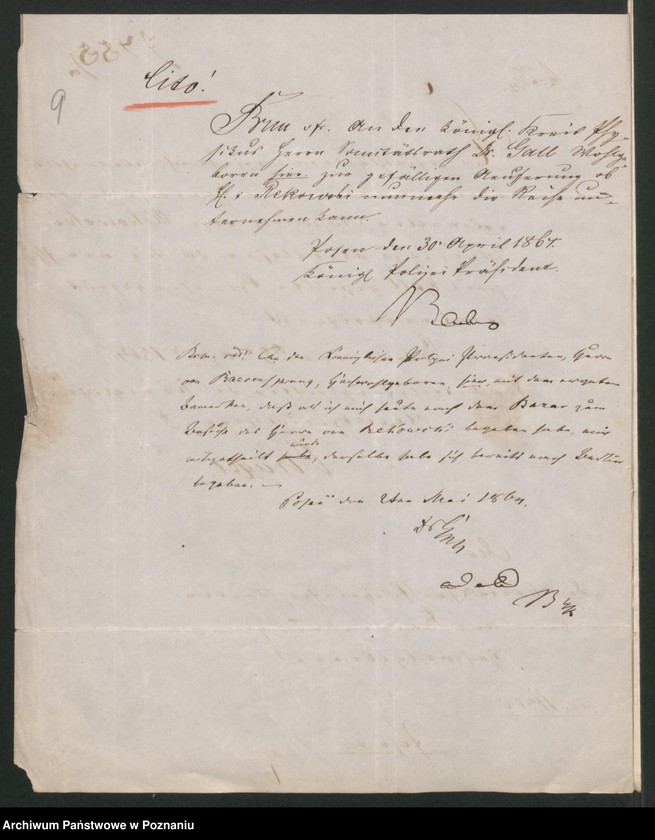 9
Cito!
Brm. v. An den Königl. Kreis Phy-
sikus Herrn Sanitätsrath Dr. Gall Wohlge-
boren hier zur gefälligen Aeußerung ob
H. v. Rekowski nunmehr die Reise un-
ternehmen kann.
Posen den 30 April 1864.
Königl Polizei Präsident.
Brm. rd. An den Königlichen Polizei Praesidenten, Herrn
von Baerensprung, Hochwohlgeboren, hier, mit dem ergebenen
Bemerken, daß als ich mich heute nach dem Bazar zum
Besuche des Herrn von Rekowski begeben habe, mir
mitgetheilt wurde, derselbe habe sich bereits nach Berlin
begeben.
Posen den 2ten Mai 1864.
Dr Gall
ad acta
Archiwum Państwowe w Poznaniu